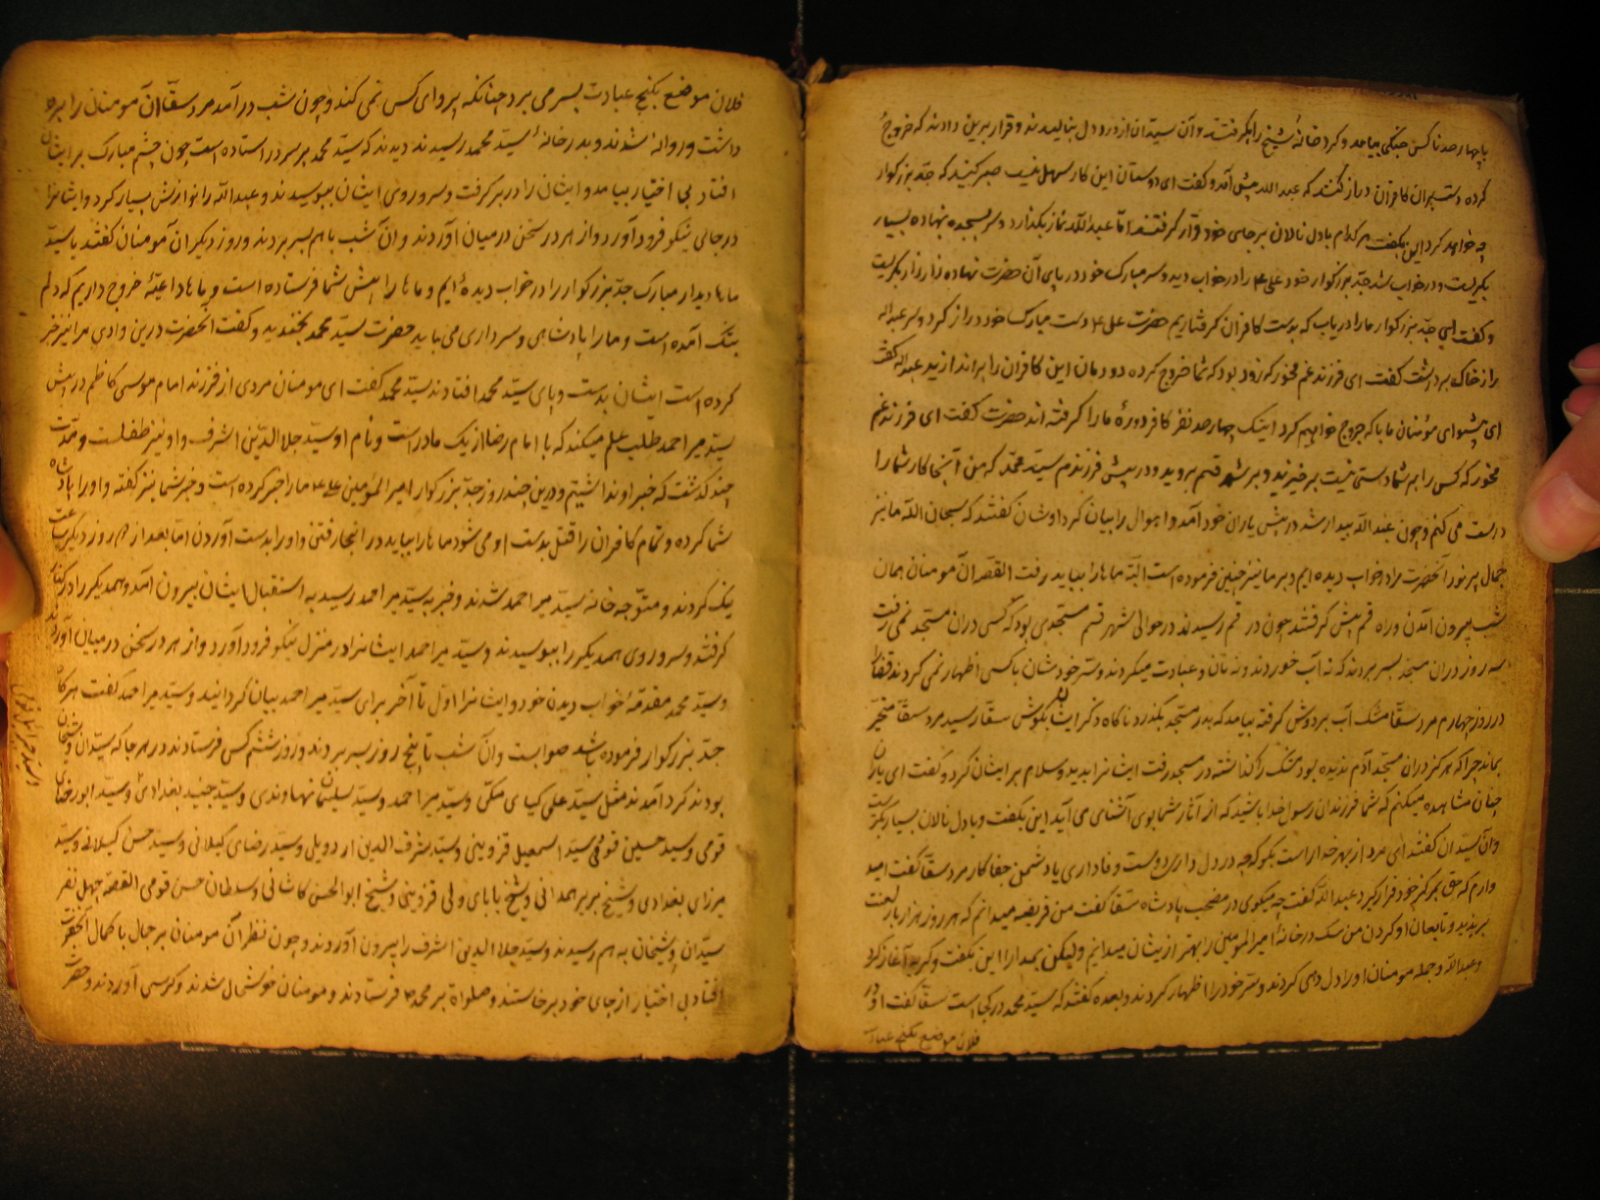 با چهار صد ناکس جنگی بیامد و گرد خانهٔ شیخ را بگرفتند و آن سیدان از درد دل بنالیدند و قرار برین دادند که خروج
کرده دست بران کافران دراز کنند که عبدالله پیش آمد و گفت ای دوستان این کار سهل نیست صبر کنید که جد بزرگوار
چه خواهد کرد این بگفت هر کدام با دل نالان بر جای خود قرار گرفتند اما عبدالله نماز بگذارد و سر بسجده نهاده بسیار
بگریست و در خواب شد جد بزرگوار خود علی را در خواب دید و سر مبارک خود در پای آن حضرت نهاده زار زار بگریست
و گفت ای جد بزرگوار ما را دریاب که بدست کافران گرفتاریم حضرت علی دست مبارک خود دراز کرد و سر عبدالله
را از خاک برداشت گفت ای فرزند غم مخور که زود بود که شما خروج کرده دودمان این کافران را براندازید عبدالله گفت
ای پیشوای مؤمنان ما با که خروج خواهیم کرد اینک چهار صد نفر کافر دورهٔ ما را گرفته اند حضرت گفت ای فرزند غم
مخور که کس را بر شما دستی نیست برخیزید و بر شهر قم بروید و در پیش فرزندم سید محمد که من آنجا کار شما را
درست می کنم و چون عبدالله بیدار شد در پیش یاران خود آمد و احوال را بیان کرد اوشان گفتند که سبحان الله ما نیز
جمال پر نور آنحضرت را در خواب دیده ایم و بر ما نیز چنین فرموده است البته ما را بباید رفت القصه آن مومنان همان
شب بیرون آمدن و راه قم پیش گرفتند چون در قم رسیدند در حوالی شهر قم مسجدی بود که کسی در آن مسجد نمی رفت
سه روز در آن مسجد بسر بردند که نه آب خوردند و نه نان و عبادت میکردند و ستر خودشان با کسی اظهار نمی کردند قضا را
در روز چهارم مرد سقا مشک آب بر دوش گرفته بیامد که بدر مسجد بگذرد ناگاه ذکر ایشان بگوش سقا رسید مرد سقا متحیر
بماند چرا که هرگز در آن مسجد آدم ندیده بود مشک را گذاشته در مسجد رفت ایشانرا بدید و سلام بر ایشان کرد و گفت ای یاران
چنان مشاهده میکنم که شما فرزندان رسول خدا باشید که از آثار شما بوی آشنای می آید این بگفت و با دل نالان بسیار بگریست
و آن سیدان گفتند ای مرد از بهر خدا راست بگو که چه در دل داری دوست و فاداری یا دشمن جفا کار مرد سقا گفت امید
وارم که حق بمرکز خود قرار گیرد عبدالله گفت چه میگوی در مصحب پادشاه سقا گفت من فریضه میدانم که هر روز هزار بار لعنت
بر یزید و تابعان او کردن من سگ در خانهٔ امیرالمومنین را بهتر از یشان میدانم ولیکن بمدارا این بگفت و گریه آغاز کرد
و عبدالله و جمله مومنان او را دل دهی کردند و ستر خود را اظهار کردند و بعده گفتند که سید محمد در کجا است سقا گفت او در
فلان موضع بکنج عبادت
فلان موضع بکنج عبادت بسر می برد چنانکه پروای کس نمی کند و چون شب در آمد مرد سقا آن مومنان را بره
داشت و روانه شدند و بدر خانهٔ سید محمد رسیدند دیدند که سید محمد بر سر در استاده است چون چشم مبارک بر ایشان
افتاد بی اختیار بیامد و ایشان را در بر گرفت و سر و روی ایشان ببوسیدند و عبدالله را نوازش بسیار کرد و ایشانرا
در جائی نیکو فرود آورد و از هر در سخن در میان آوردند و آن شب با هم بسر بردند و روز دیگر آن مومنان گفتند یا سید
ما ها دیدار مبارک جد بزرگوار را در خواب دیده ایم و ما ها را پیش شما فرستاده است و ما ها داعیهٔ خروج داریم که دلم
بتنگ آمده است و ما را پادشاهی و سرداری می باید حضرت سید محمد بخندید و گفت آنحضرت درین وادی مرا نیز خبر
کرده است ایشان بدست و پای سید محمد افتادند سید محمد گفت ای مومنان مردی از فرزند امام موسی کاظم در پیش
سید میر احمد طلب علم میکند که با امام رضا از یک مادر است و نام او سید جلال الدین اشرف و او نیز طفلست و مدت
چند گذشت که خبر او نداشتیم و درین چند روز جد بزرگوار امیرالمومنین ما را خبر کرده است و خبر شما نیز گفته و او را پادشاه
شما کرده و تمام کافران را قتل بدست او می شود ما ها را بباید در آنجا رفتن و او را بدست آوردن اما بعد از روز دیگر ساعت
نیک کردند و متوجه خانه سید میر احمد شدند و خبر به سید میر احمد رسید به استقبال ایشان بیرون آمد و همدیگر را در کنار
گرفتند و سر و روی همدیگر را ببوسیدند و سید میر احمد ایشانرا در منزل نیکو فرود آورد و از هر در سخن در میان آوردند
و سید محمد مقدمهٔ خواب دیدهٔ خود و ایشانرا اول تا آخر برای سید میر احمد بیان گردانید و سید میر احمد گفت هر گاه
جد بزرگوار فرموده باشد صوابست و آن شب تا پنج روز بسر بردند و روز ششم کس فرستادند در هر جا که سیدان و شیخان
بودند گرد آمدند مثل سید علی کیای مکی و سید میر احمد و سید سلیمان نهاوندی و سید جنید بغدادی و سید ابو رضای
قومی و سید حسین قومی و سید اسمعیل قزوینی و سید شرف الدین اردویلی و سید رضای گیلانی و سید حسن گیلانی و سید
میرزای بغدادی و شیخ بریر همدانی و شیخ بابای ولی قزوینی و شیخ ابوالحسن کاشانی و سلطان حسن قومی القصه چهل نفر
سیدان و شیخان به هم رسیدند و سید جلال الدین اشرف را بیرون آوردند و چون نظر آن مومنان بر جمال با کمال آنحضرت
افتاد بی اختیار از جای خود برخاستند و صلواة بر محمد فرستادند و مومنان خوشحال شدند و کرسی آوردند و حضرت